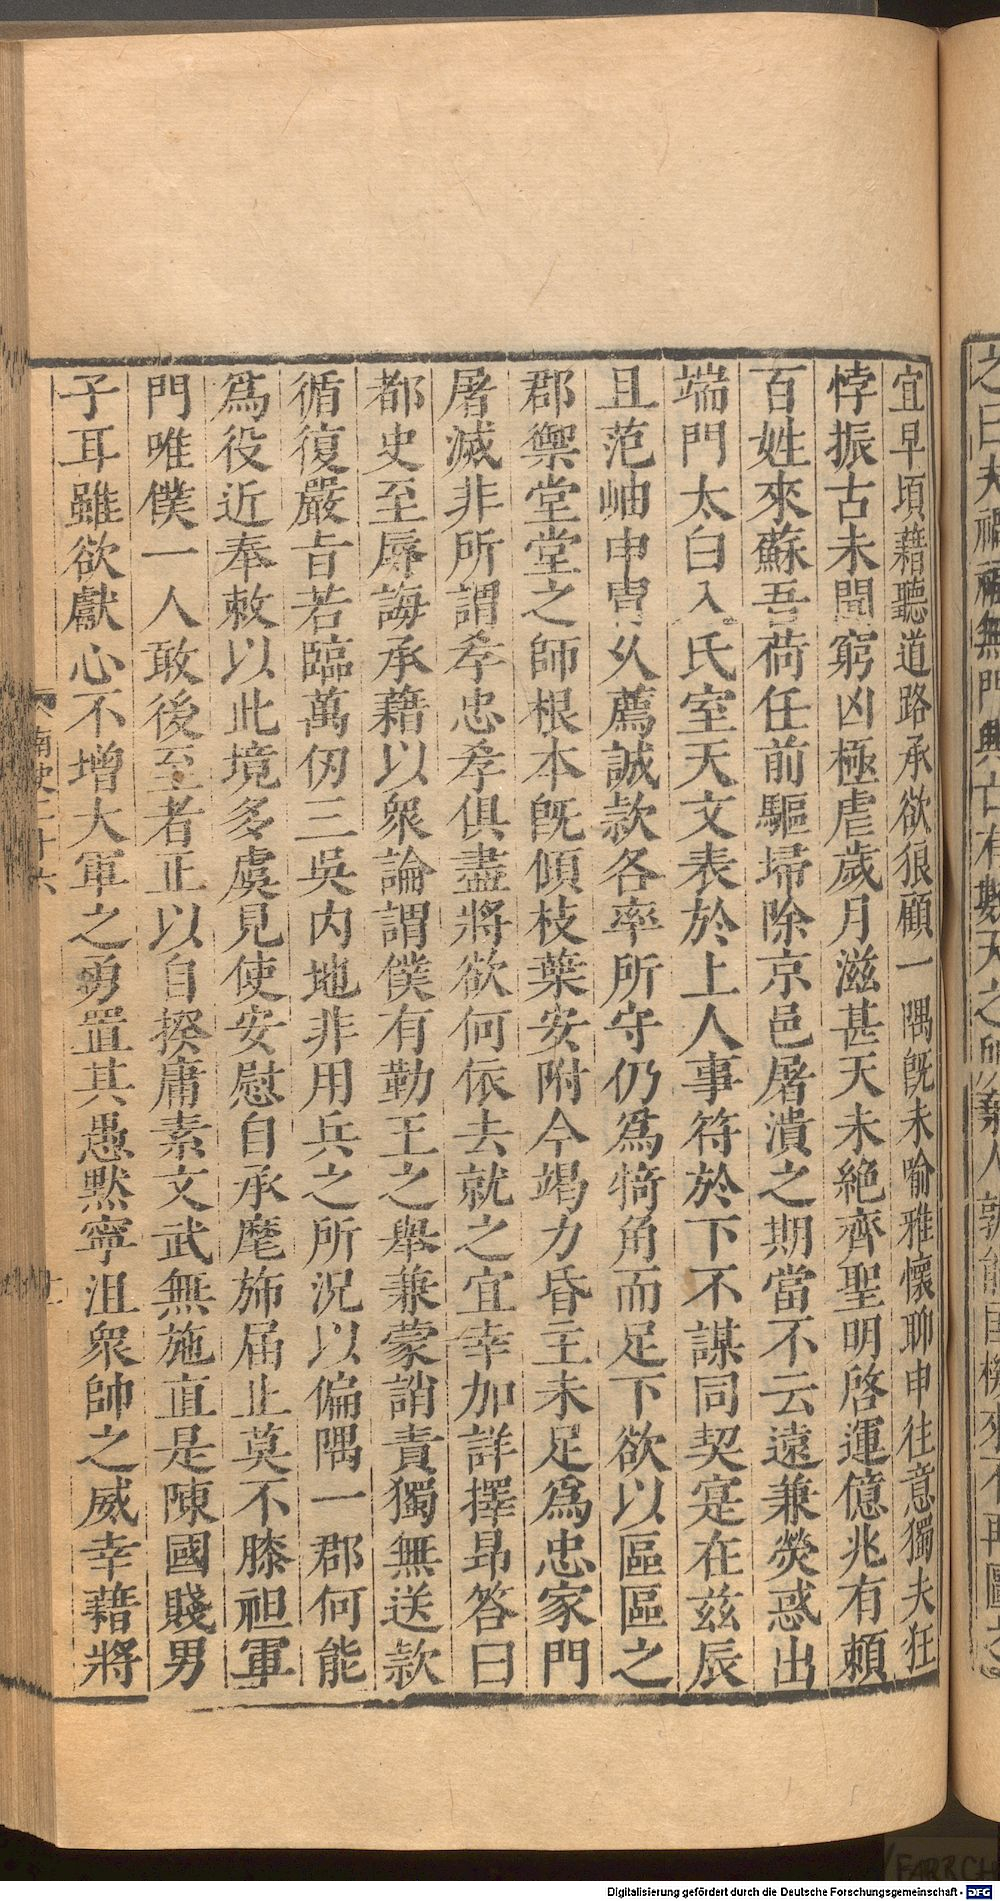 宜早頃藉聽道路承欲狼顧一隅旣未喻雅懷聊申往意獨夫狂
悖振古未聞窮凶極虐歲月滋甚天未絕齊聖明啓運億兆有賴
百姓來蘇吾荷任前驅埽除京邑屠潰之期當不云遠兼熒惑出
端門太白入氐室天文表於上人事符於下不謀同契寔在兹辰
且范岫申胄久薦誠款各率所守仍爲犄角而足下欲以區區之
郡禦堂堂之師根本旣傾枝葉安附今竭力昏主未足爲忠家門
屠滅非所謂孝忠孝俱盡將欲何依去就之宜幸加詳擇昂答曰
都史至辱誨承藉以衆論謂僕有勤王之舉兼蒙誚責獨無送款
循復嚴旨若臨萬仞三吳内地非用兵之所況以偏隅一郡何能
爲役近奉敕以此境多虞見使安慰自承麾斾届止莫不膝袒軍
門唯僕一人敢後至者正以自揆庸素文武無施直是陳國賤男
子耳雖欲獻心不增大軍之勇置其愚默寧沮衆帥之威幸藉將
南史二十六
十一
Digitalisierung gefördert durch die Deutsche Forschungsgemeinschaft - DFG